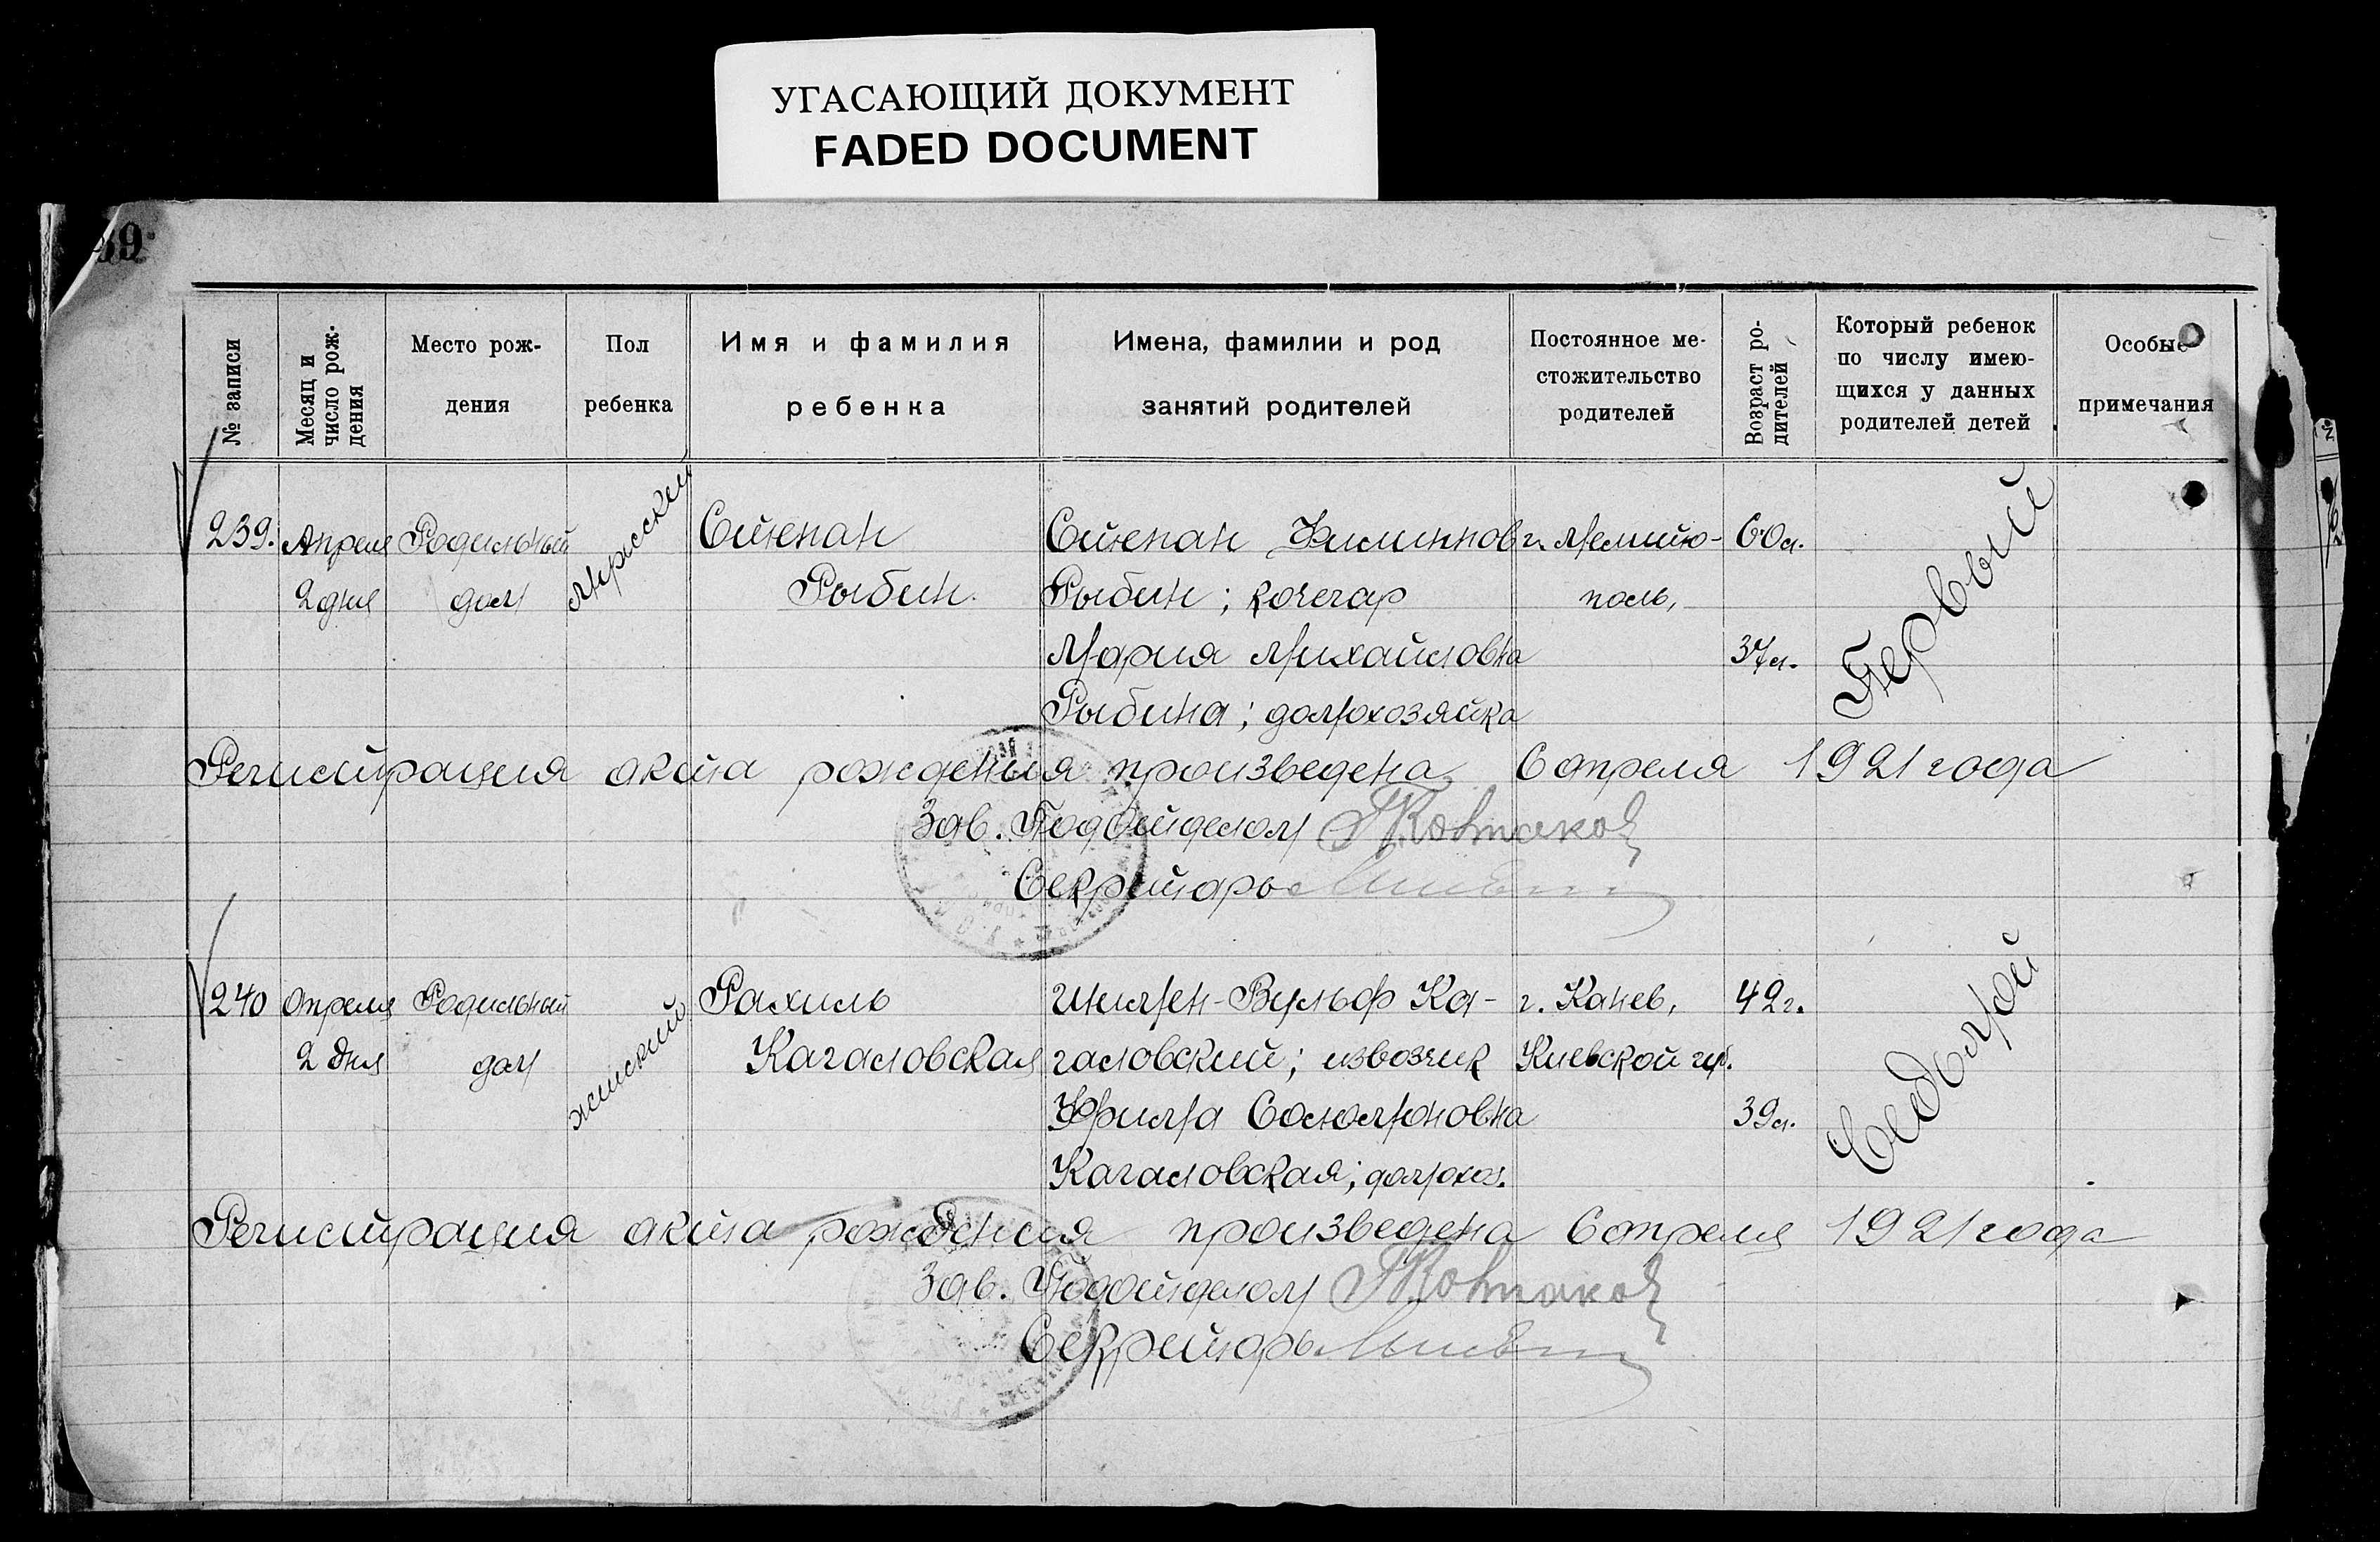 УГАСАЮЩИЙ ДОКУМЕНТ
FADED DOCUMENT
№ записи
Месяц и
число рож-
дения
Место рож-
дения
Пол
ребенка
Имя и фамилия
ребенка
Имена, фамилии и род
занятий родителей
Постоянное ме-
стожительство
родителей
Возраст ро-
дителей
Который ребенок
по числу имею-
щихся у данных
родителей детей
Особые
примечания
239. Апреля Родильный мужский Степан Степан Филиппов г. Мелито- 60л. Первый
2 дня дом Рыбин. Рыбин; кочегар поль,
Мария Михайловна 37л.
Рыбина; домохозяйка
Регистрация акта рождения произведена 6 апреля 1921 года
Зав. Подотделом
Секретарь
240 Апреля Родильный женский Рахиль Ка- г. Канев, 42г. Седьмой
2 дня дом Кагаловская галовский; извозчик Киевской губ.
Фрима Соломоновна 39л.
Кагаловская; домохоз.
Регистрация акта рождения произведена 6 апреля 1921 года
Зав. Подотделом
Секретарь